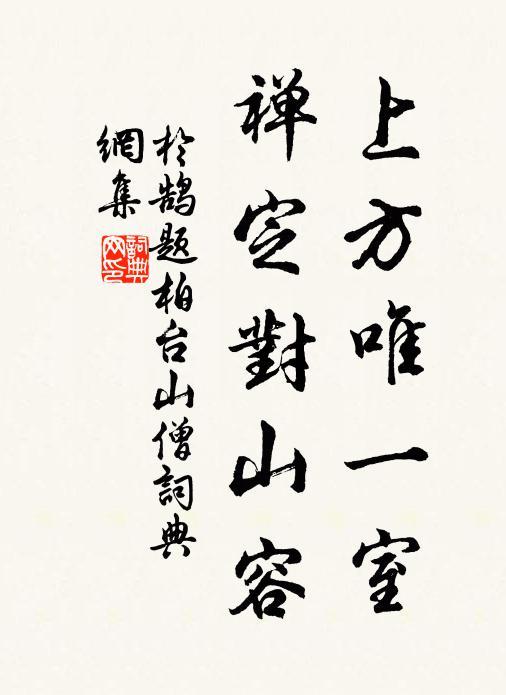 上方唯一室
禅定對山容
於鵠題柏台山僧詞典
網集
詞典
网印